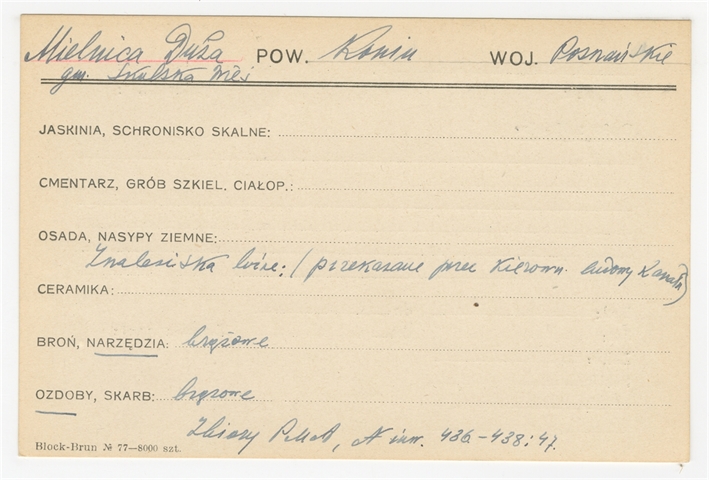 Mielnica Duża POW. Konin WOJ. Poznańskie
gm. Skulska Wieś
JASKINIA, SCHRONISKO SKALNE:
CMENTARZ, GRÓB SZKIEL. CIAŁOP.:
OSADA, NASYPY ZIEMNE:
Znaleziska luźne: (przekazane przez Kierown. budowy Kanału)
CERAMIKA:
BROŃ, NARZĘDZIA: brązowe
OZDOBY, SKARB: brązowe
Zbiory PMA, N inw. 436-438:47.
Block-Brun № 77—8000 szt.